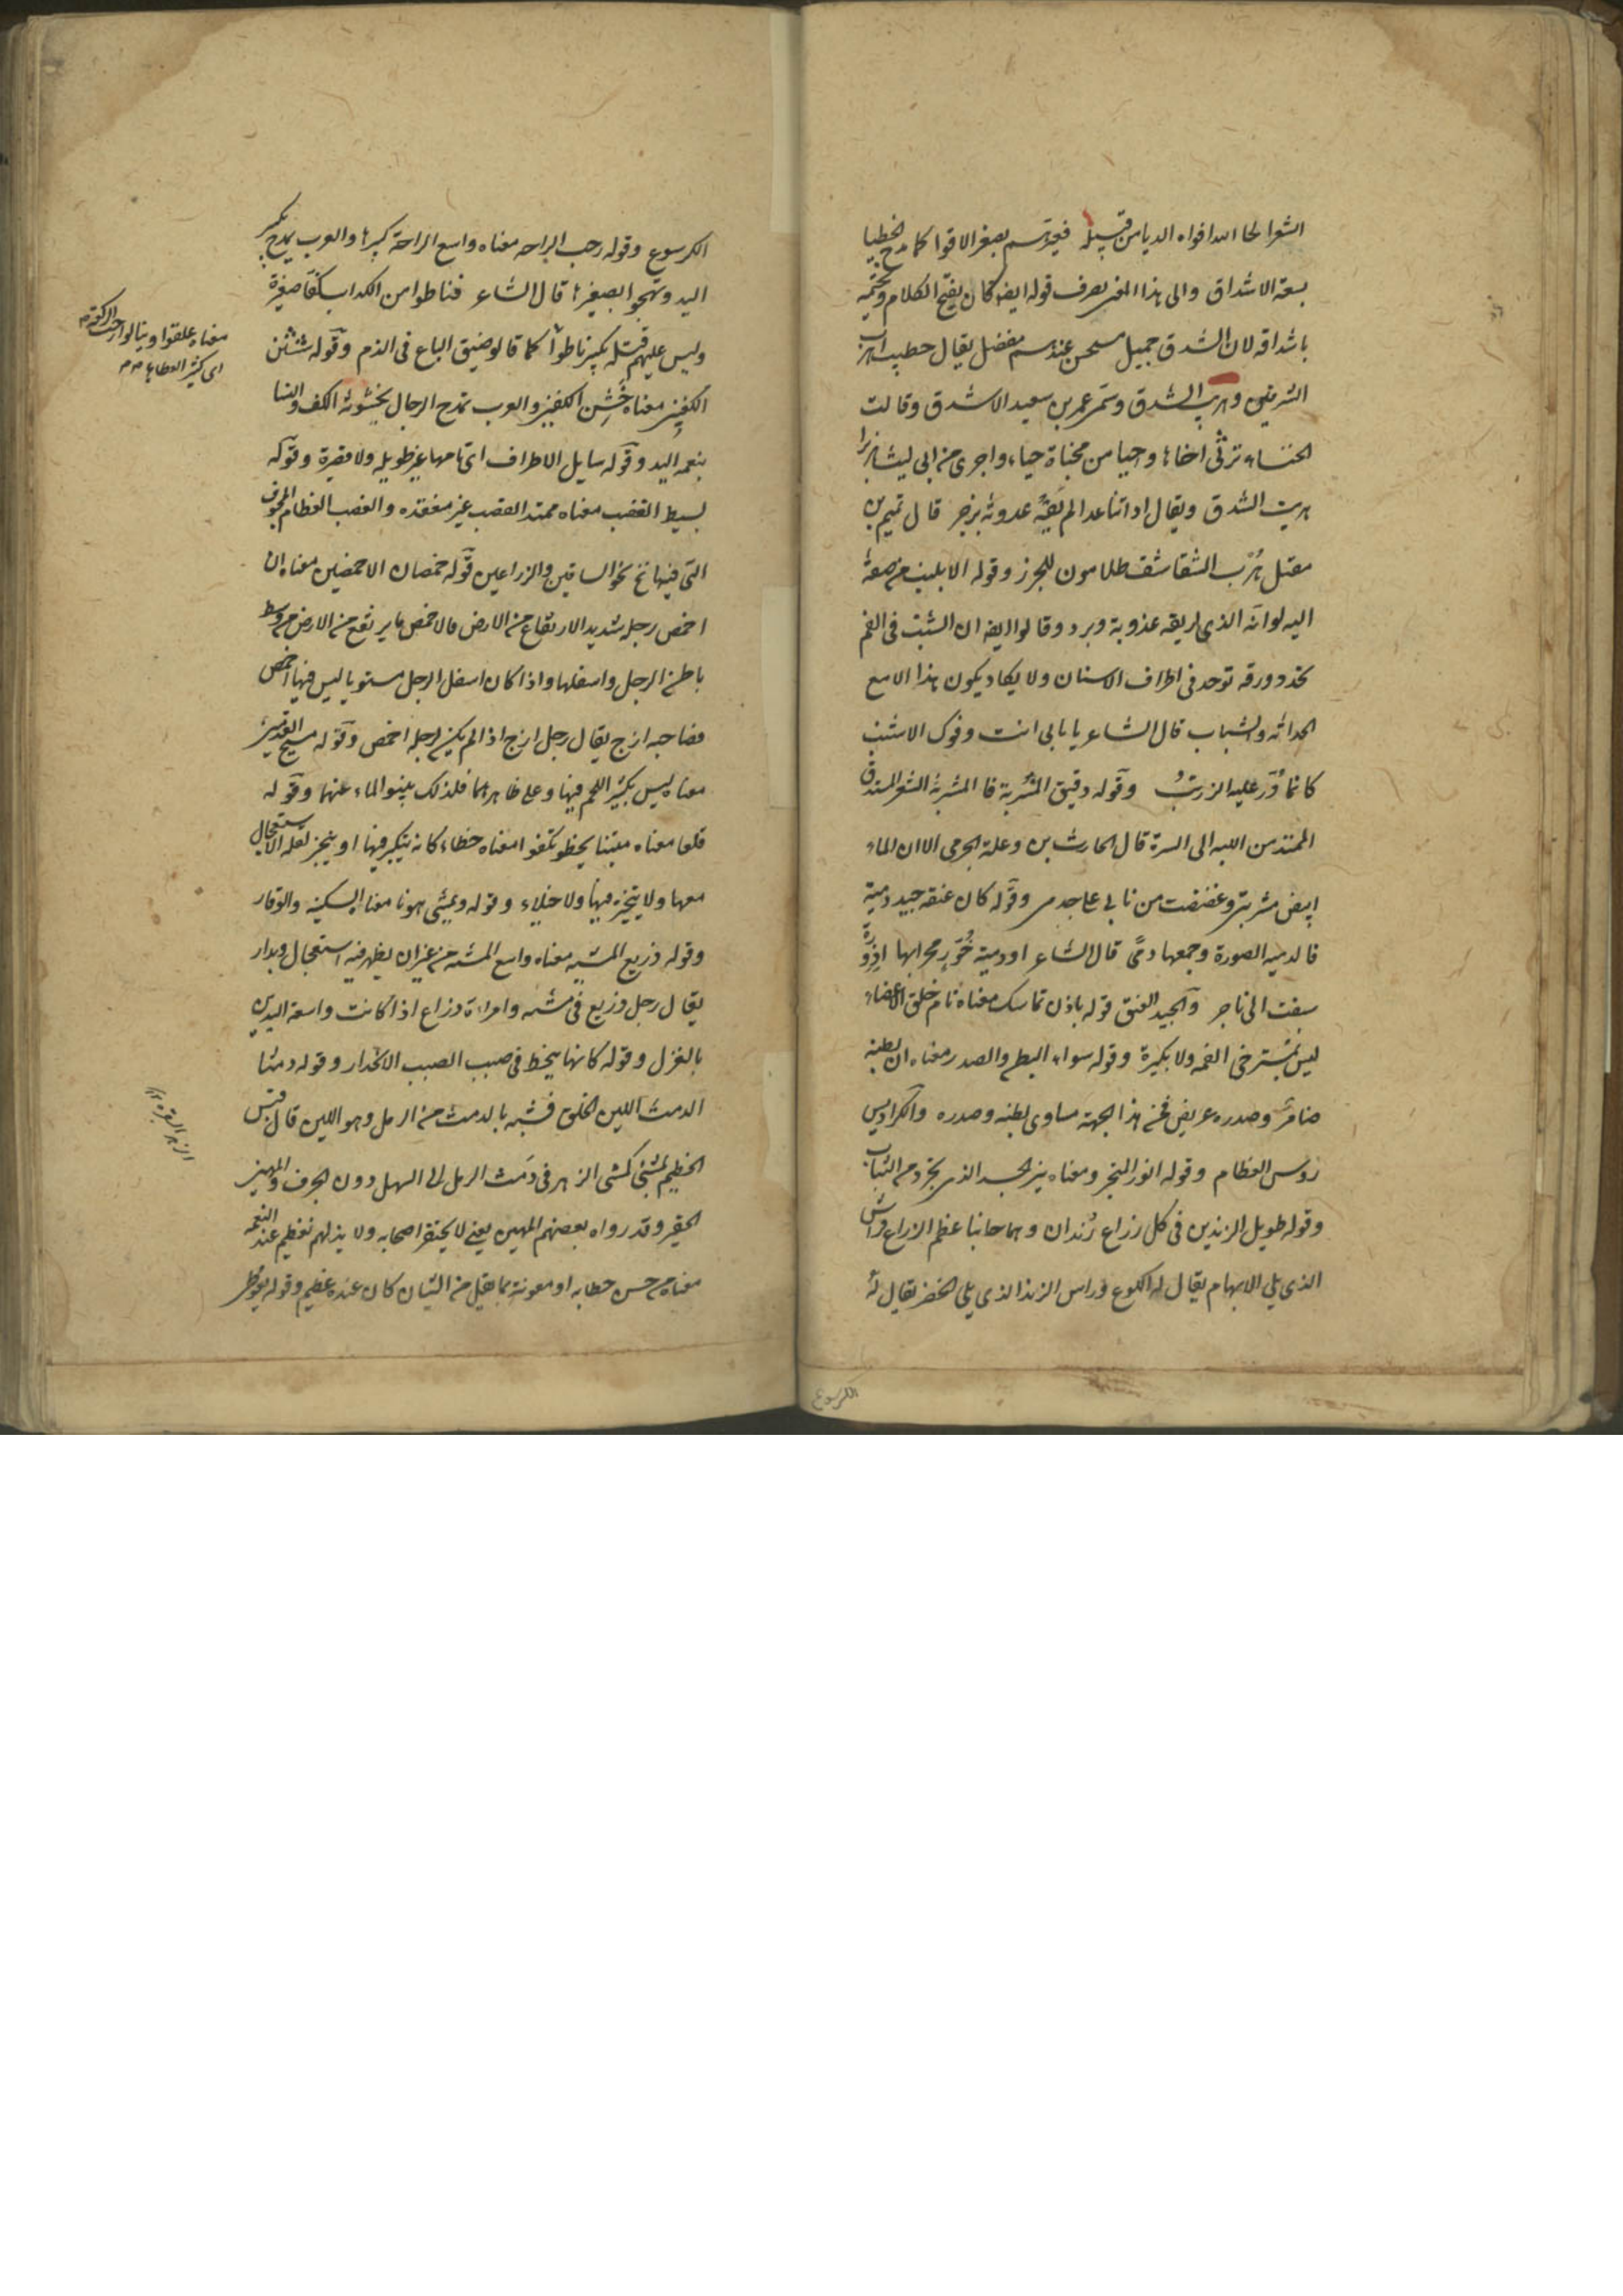 الشعرا لحا الله افواه الدبا من قبيله فعيرتهم بصغر الافوا كما مدح الخطبا
بسعة الاشداق والى هذا المعنى يصرف قوله ايضا كان يفتح الكلام ويختمه
باشداقه لان الشدق جميل مستحسن عندهم مفضل يقال خطيب اهرت
الشدقين وهرت الشدق وسمى عمرو بن سعيد الاشدق وقالت
الخنساء ترثى اخاها واحيا من مخباة حياء واجرى من ابى ليث هزبرا
هريت الشدق ريقال اذا ما عدا لم تنه عدوته بزجر قال تميم بن
مقبل هرت الشقاشق ظلامون للجزر وقوله الاشنب من صفة
اليه لواته الذى لريقه عذوبة وبرد وقالوا ايضا ان الشنب فى الفم
تحدد ورقه توجد فى اطراف الاسنان ولا يكاد يكون هذا الا مع
الحداثه والشباب قال الشاعر يا بابى انت وفوك الاشنب
كانما ذر عليه الزرنب وقوله دقيق المسربة فالمسربة الشعر المستدق
الممتد من اللبه الى السرة قال الحارث بن وعلة الجرمى الاان لما
ابيض مسربتى وعضضت من نابى على جدمى وقوله كان عنقه جيد دمية
فالدميه الصورة وجمعها دمى قال الشاعر او دمية صور محرابها او درة
سيقت الى تاجر والجيد العنق قوله بادن متماسك معناه تام خلق الاعضاء
ليس بمسترخى اللحمه ولا بكثيرة وقوله سواء البطن والصدر معناه ان بطنه
ضامر وصدره عريض فمن هذا الجهة مساوى بطنه وصدره والكراديس
روس العظام وقوله انور المتجرد معناه نير الجسد الذى تجرد من الثياب
وقوله طويل الزندين فى كل ذراع زندان وهما جانبا عظم الذراع وراس
الذى يلى الابهام يقال له الكوع وراس الزند الذى يلى الخنصر يقال له
الكرسوع
الكرسوع وقوله رحب الراحه معناه واسع الراحة كبيرها والعرب تمدح بكبر
اليد وتهجوا بصغيرها قال الشاعر فناطوا من الكداب كفا صغيرة
وليس عليهم قتله بكبير ناطوا كما قالوا ضيق الباع فى الذم وقوله شثن
الكفين معناه خشن الكفين والعرب تمدح الرجال بخشونة الكف والنسا
بنعمه اليد وقوله سايل الاطراف اى تامها غير طويله ولا قصيرة وقوله
بسيط القصب معناه ممتد القصب غير منعقده والقصب العظام المجوف
التى فيها مخ نحو الساقين والذراعين قوله خمصان الاخمصين معناه ان
اخمص رجله شديد الارتفاع من الارض فالاخمص ما يرتفع من الارض من وسط
باطن الرجل واسفلها واذا كان اسفل الرجل مستويا ليس فيها اخمص
فصاحبه ارح يقال رجل ارح اذا لم يكن لرجله اخمص وقوله مسيح القدمين
معناه ليس بكثير اللحم فيها وعلى ظاهرهما فلذلك ينبو الماء عنهما وقوله
قلعا معناه متثبتا يخطو تكفوا معناه خطاء كانه يتكبر فيها او يتبختر لقله الاستعجال
معها ولا يتبختر فيها ولا خيلاء وقوله ويمشى هونا معناه السكينه والوقار
وقوله ذريع المشيه معناه واسع المشيه من غير ان يظهر فيه استعجال وبدار
يقال رجل ذريع فى مشيه وامراءة ذراع اذا كانت واسعة اليدين
بالغزل وقوله كانها ينحط فى صبب الصبب الانحدار وقوله دمثا
الدمث اللين الخلق فشبه بالدمث من الرمل وهو اللين قال قيس
الخطيم تمشى كمشى الزهر فى دمث الرمل الى السهل دون الجرف والمهين
الحقير وقد رواه بعضهم المهين يعنى لا يحتقر اصحابه ولا يذلهم تعظيم عنده النعمه
معناه من حسن خطابه او معونة بما يقل من الشان كان عنده عظيم وقوله
معناه علقوا وينالوا
اى كثير العطايا
الزهر البقره